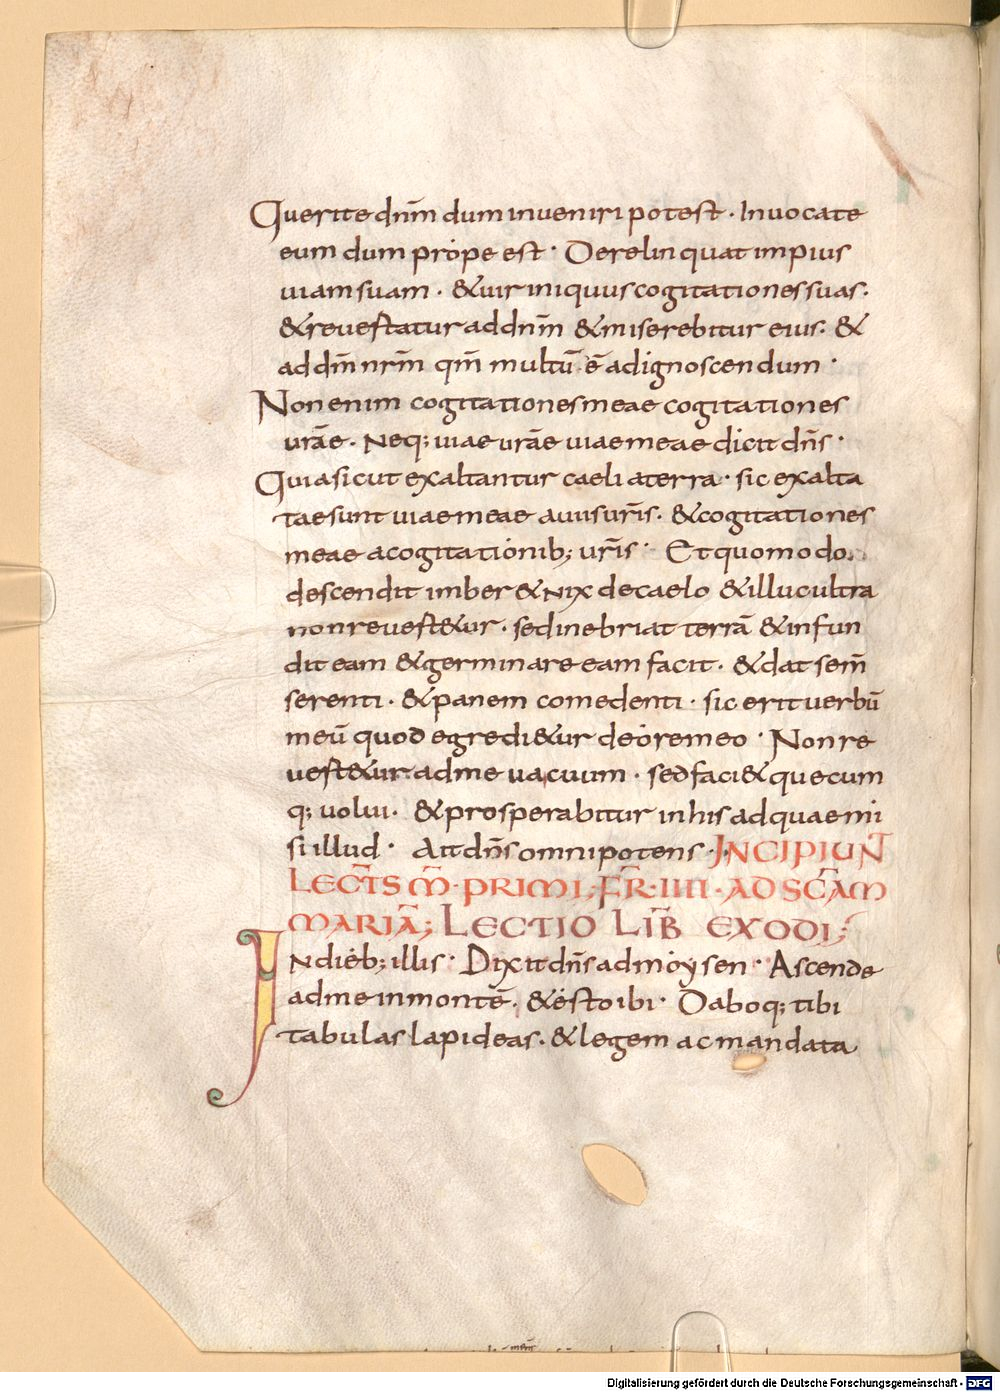 Querite dnm̄ dum inueniri potest · Inuocate
eum dum prope est · Derelinquat impius
uiam suam · & uir iniquus cogitationes suas ·
& reuertatur ad dnm̄ & miserebitur eius · &
ad dm̄ nrm̄ qm̄ multū · ē ad ignoscendum ·
Non enim cogitationes meae cogitationes
urāe · Neq; uiae urāe uiae meae dicit dn̄s ·
Quia sicut exaltantur caeli a terra · sic exalta
tae sunt uiae meae a uiis ur̄is · & cogitationes
meae a cogitationib; ur̄is · Et quomodo
descendit imber & nix de caelo & illuc ultra
non reuert&ur · sed inebriat terrā & infun
dit eam & germinare eam facit · & dat sem̄
serenti · & panem comedenti · sic erit uerbū
meū quod egredi&ur de ore meo · Non re
uert&ur ad me uacuum · sed faci& quecum
q; uolui · & prosperabitur in his ad quae mi
si illud · Ait dn̄s omnipotens · INCIPIUNT̄
LECT̄S M̄ · PRIMI; F̄R · IIII · AD SC̄AM
MARIĀ; LECTIO LIB̄ EXODI;
In dieb; illis · Dixit dn̄s ad moysen · Ascende
ad me in montē · & esto ibi · Daboq; tibi
tabulas lapideas · & legem ac mandata
Digitalisierung gefördert durch die Deutsche Forschungsgemeinschaft - DFG